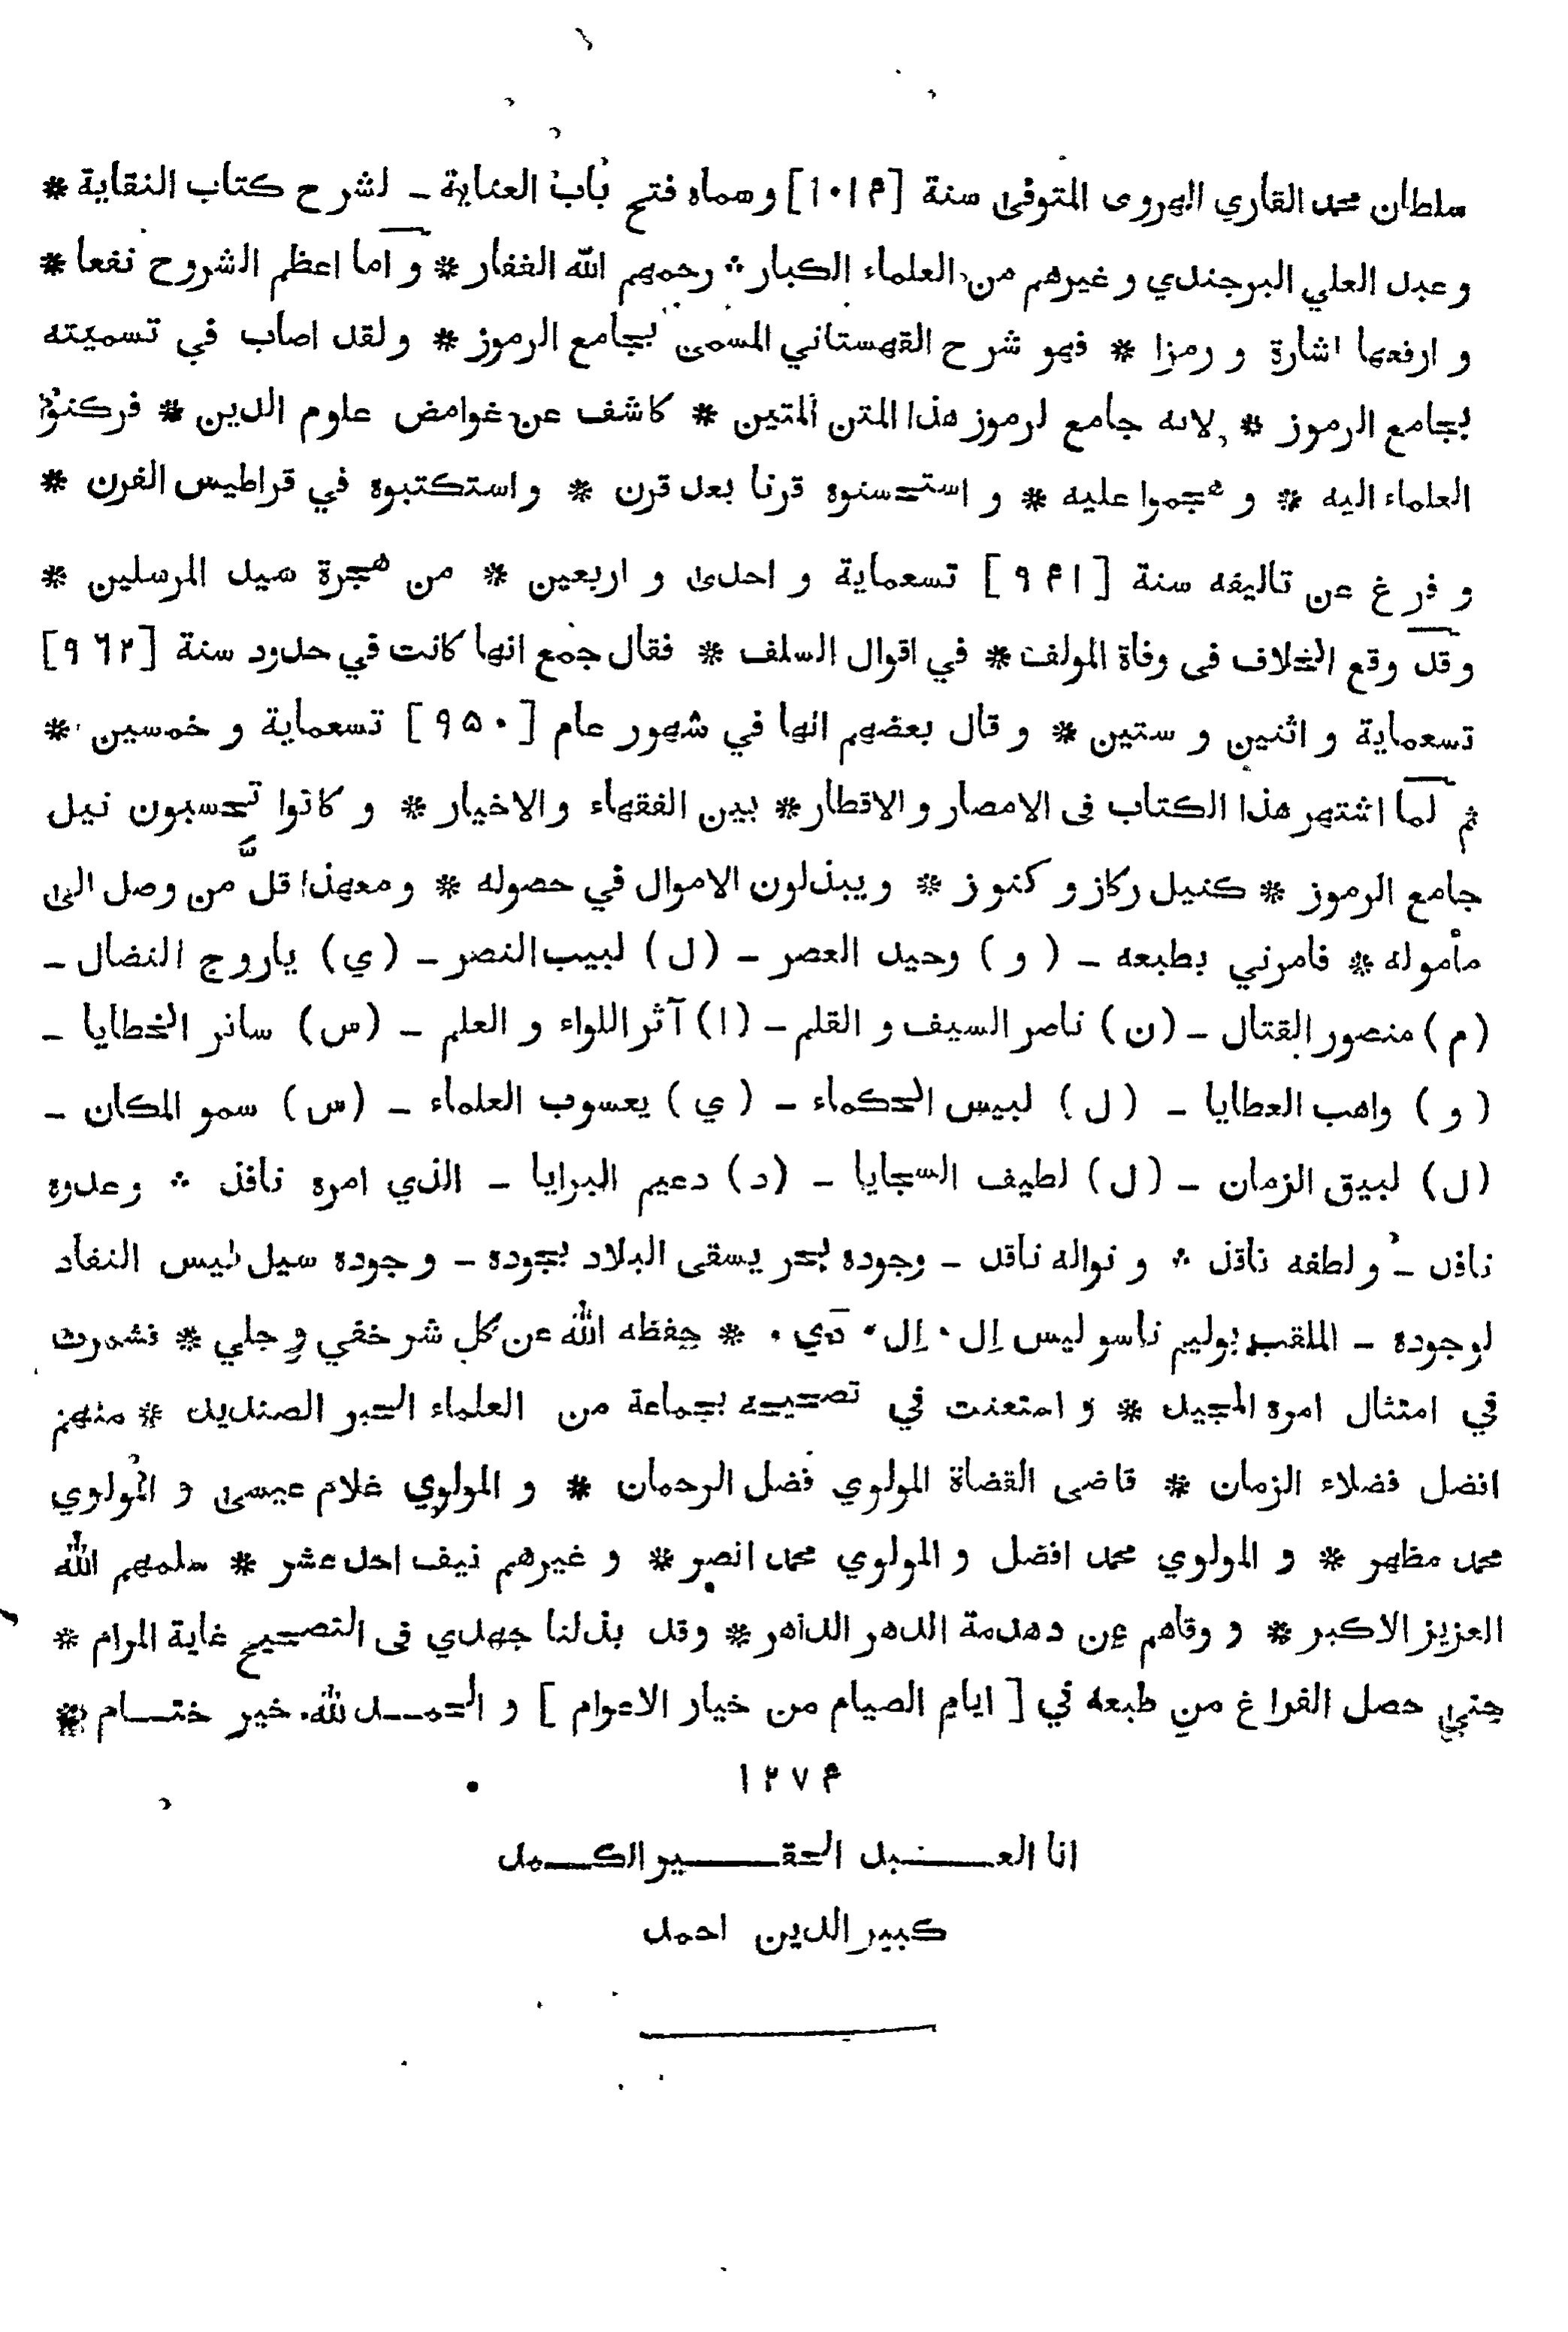 سلطان محمد القاري الهروى المتوفىٰ سنة [۱۰۱۴] وسماه فتح باب العناية ـ لشرح كتاب النقاية *
وعبد العلي البرجندي وغيرهم من العلماء الكبار ∴ رحمهم الله الغفار * و اما اعظم الشروح نفعا *
و ارفعها اشارة و رمزا * فهو شرح القهستاني المسمىٰ بجامع الرموز * ولقد اصاب في تسميته
بجامع الرموز * لانه جامع لرموز هذا المتن المتين * كاشف عن غوامض علوم الدين * فركنوا
العلماء اليه * و هجموا عليه * و استحسنوه قرنا بعد قرن * واستكتبوه في قراطيس الفرن *
و فرغ عن تاليفه سنة [۹۴۱] تسعماية و احدىٰ و اربعين * من هجرة سيد المرسلين *
وقد وقع الخلاف فى وفاة المولف * في اقوال السلف * فقال جمع انها كانت في حدود سنة [۹٦۲]
تسعماية و اثنين و ستين * و قال بعضهم انها في شهور عام [۹۵۰] تسعماية و خمسين *
ثم لما اشتهر هذا الكتاب فى الامصار و الاقطار * بين الفقهاء والاخيار * و كانوا تحسبون نيل
جامع الرموز * كنيل ركاز و كنوز * ويبذلون الاموال في حصوله * ومعهذا قلّ من وصل الىٰ
مأموله * فامرني بطبعه ـ (و) وحيد العصر ـ (ل) لبيب النصر ـ (ي) ياروج النضال ـ
(م) منصور القتال ـ (ن) ناصر السيف و القلم ـ (ا) آثر اللواء و العلم ـ (س) ساتر الخطايا ـ
(و) واهب العطايا ـ (ل) لبيس الحكماء ـ (ي) يعسوب العلماء ـ (س) سمو المكان ـ
(ل) لبيق الزمان ـ (ل) لطيف السجايا ـ (د) دعيم البرايا ـ الذي امره نافذ ∴ وعدوه
نافد ـ و لطفه ناقذ ∴ و نواله ناقد ـ وجوده بحر يسقى البلاد بجوده ـ وجوده سيل ليس النفاد
لوجوده ـ الملقب بوليم ناسو ليس اِل ٠ اِل ٠ دّي ٠ * حفظه الله عن كل شر خفي و جلي * فشمرت
في امتثال امره المجيد * و استعنت في تصحيحه بجماعة من العلماء الحبر الصنديد * منهم
افضل فضلاء الزمان * قاضى القضاة المولوي فضل الرحمان * و المولوي غلام عيسىٰ و المولوي
محمد مظهر * و المولوي محمد افضل و المولوي محمد انصر * و غيرهم نيف احد عشر * سلمهم الله
العزيز الاكبر * و وقاهم عن دهدمة الدهر الداهر * وقد بذلنا جهدي فى التصحيح غاية المرام *
حتىٰ حصل الفراغ من طبعه في [ ايام الصيام من خيار الاعوام ] و الحمد لله خير ختام *
۱۲۷۴
انا العبد الحقير الكمد
كبير الدين احمد